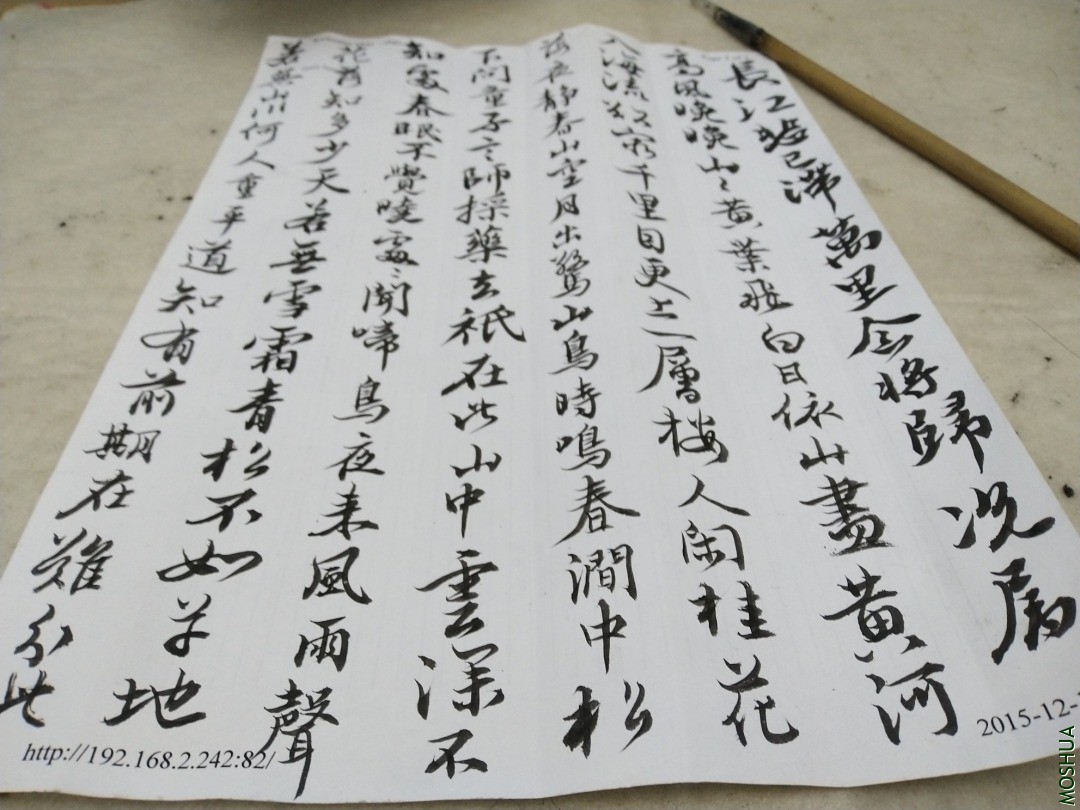 長江悲已滯萬里念將歸況屬
高風晚晚山〻黃葉飛白日依山盡黃河
入海流欲窮千里目更上一層樓人閑桂花
落夜靜春山空月出驚山鳥時鳴春澗中松
下問童子言師採藥去祇在此山中雲深不
知處春眠不覺曉處〻聞啼鳥夜來風雨聲
花落知多少天若無雪霜青松不如草地
若無山川何人重平道知有前期在難分此
http://192.168.2.242:82/
2015-12-
MOSHUA